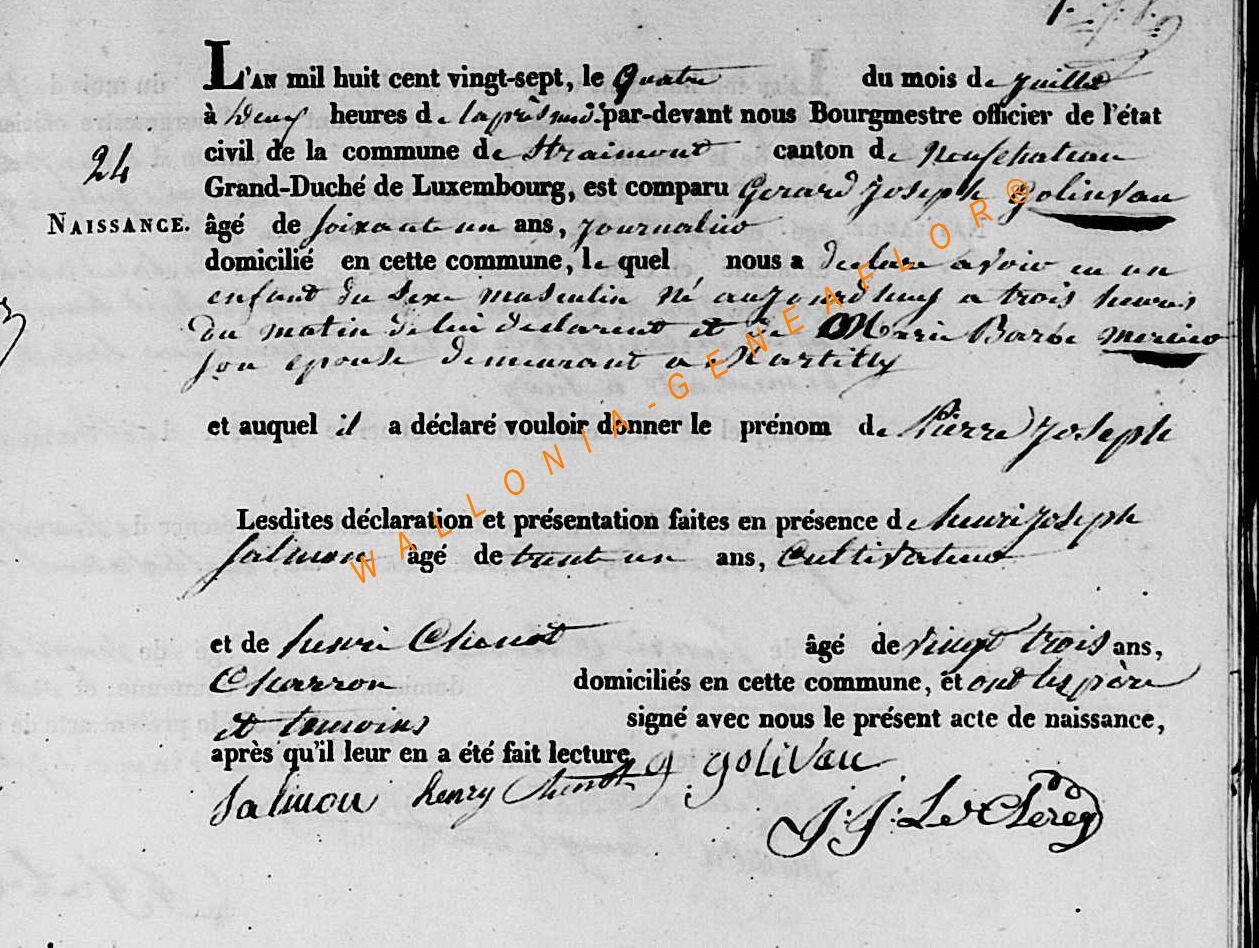 L'AN mil huit cent vingt-sept, le quatre du mois de juillet
à deux heures de laprèsmidi par-devant nous Bourgmestre officier de l'état
civil de la commune de Straimont canton de neufchateau
24
Grand-Duché de Luxembourg, est comparu Gerard joseph golinvau
NAISSANCE. âgé de soixante un ans, journalier
domicilié en cette commune, le quel nous a declare avoir eu un
enfant du sexe masculin né aujourdhuy a trois heures
du matin de lui declarent et de Marie Barbe mercier
son epouse demeurant a Martilly
et auquel il a déclaré vouloir donner le prénom de Pierre joseph
Lesdites déclaration et présentation faites en présence de henri joseph
Salmon âgé de trente un ans, Cultivateur
et de henri Chenot âgé de vingt trois ans,
Charron domiciliés en cette commune, et ont les père
et temoins signé avec nous le présent acte de naissance,
après qu'il leur en a été fait lecture
Salmon henry Chenot g j: golivau
J: J: Le Clereq
WALLONIA-GENEAFLOR®